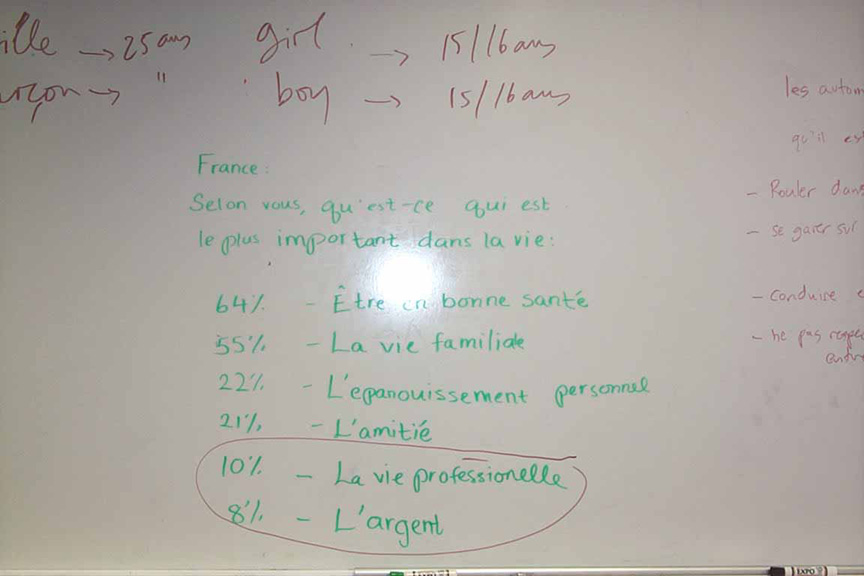 ille → 25 ans girl → 15/16 ans
arçon → " boy → 15/16 ans
France:
Selon vous, qu'est-ce qui est
le plus important dans la vie:
64% - Être en bonne santé
55% - La vie familiale
22% - L'epanouissement personnel
21% - L'amitié
10% - La vie professionelle
8% - L'argent
les autom
qu'il es
- Rouler dans
- se garer sur
- conduire
- ne pas respec
EXPO